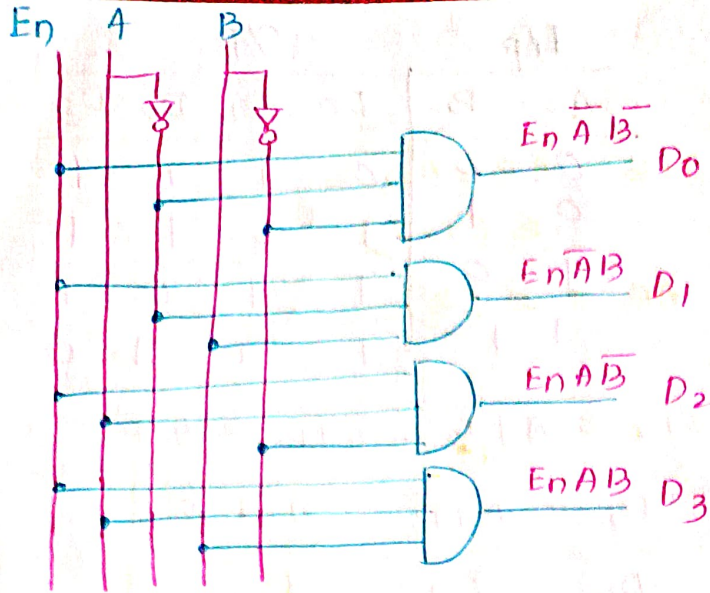 En A B
En A̅ B̅. D0
En A̅ B D1
En A B̅ D2
En A B D3